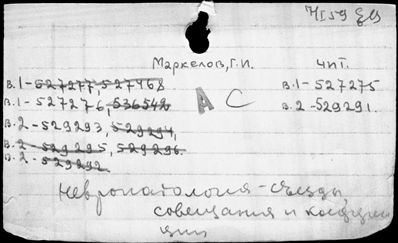 Маркелов, Г.И. чит.
В.1-527277, 527468 В.1-527275
В.1-527276, 536548 В.2-529291.
А С
В.2-529293, 529294,
В.2-529295, 529296.
В.2-529292
Невропатология-съезды,
совещания и конферен
ции